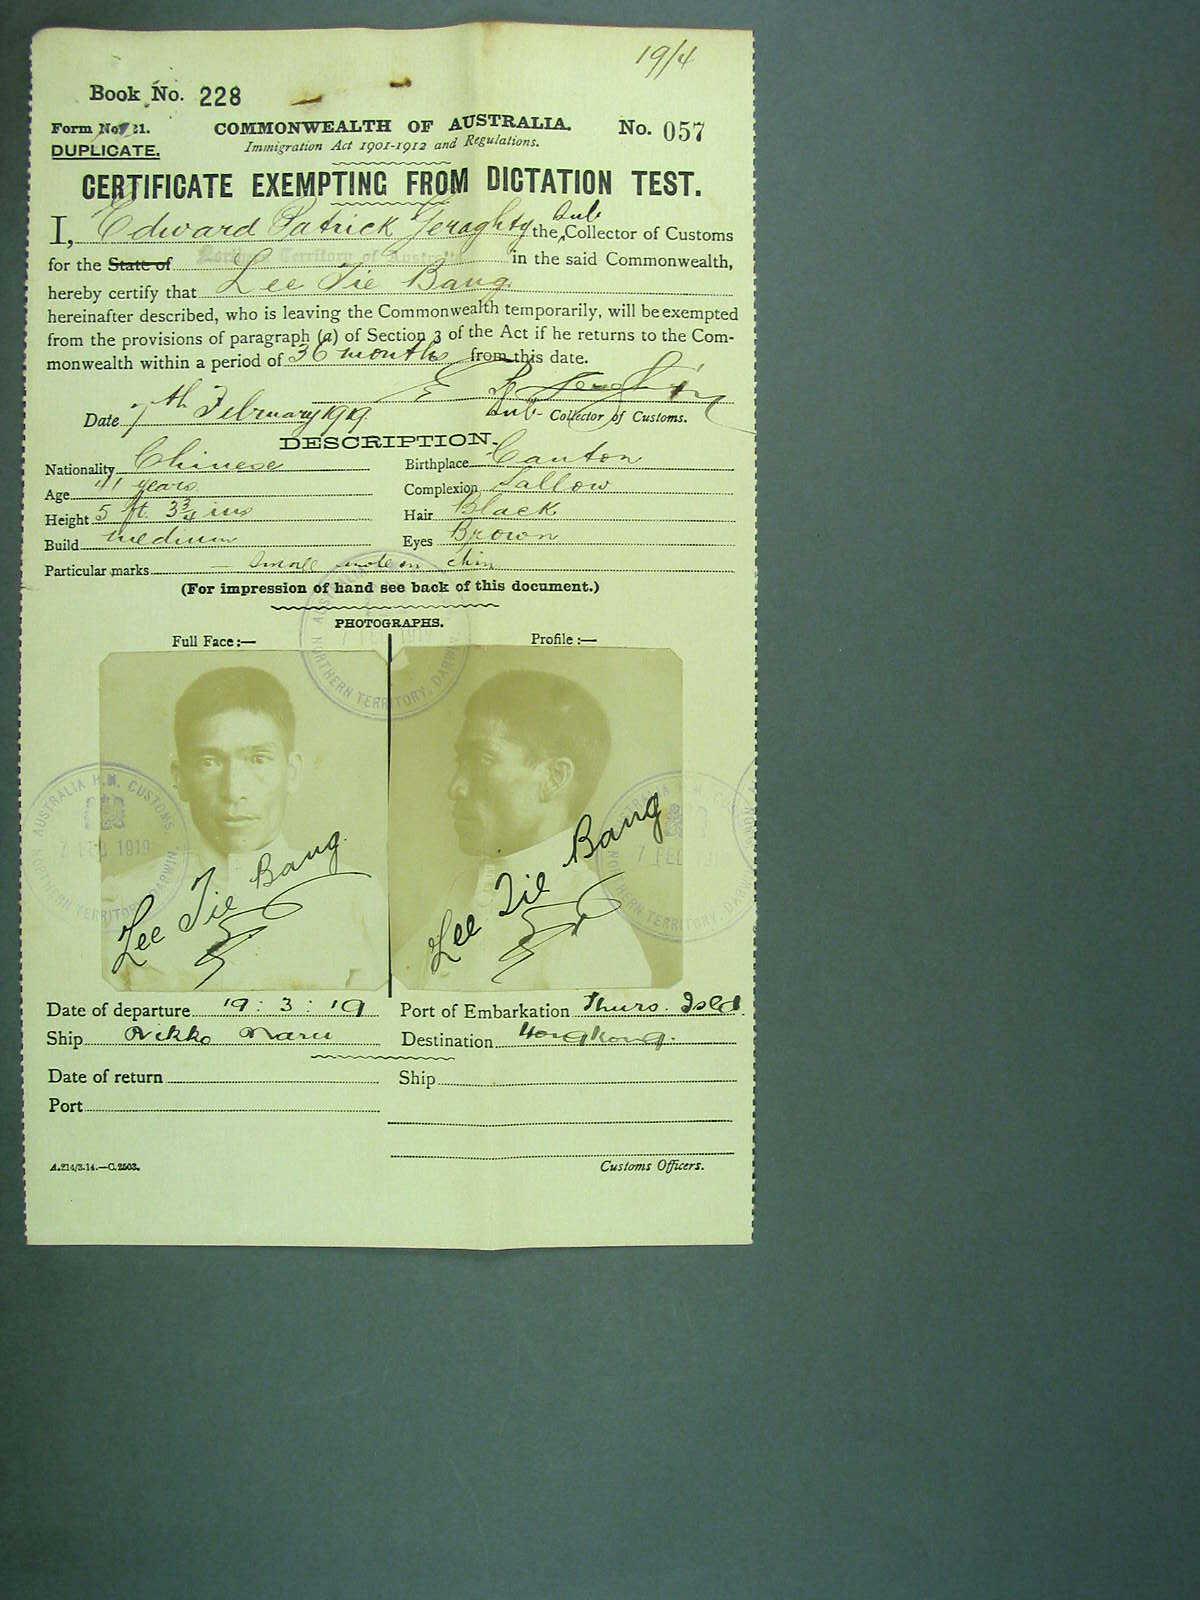 19/4
Book No. 228
Form No. 21.
COMMONWEALTH OF AUSTRALIA.
No. 057
DUPLICATE.
Immigration Act 1901-1912 and Regulations.
CERTIFICATE EXEMPTING FROM DICTATION TEST.
I, Edward Patrick Geraghty the Sub Collector of Customs
for the State of Northern Territory of Australia in the said Commonwealth,
hereby certify that Lee Tie Bang
hereinafter described, who is leaving the Commonwealth temporarily, will be exempted
from the provisions of paragraph (a) of Section 3 of the Act if he returns to the Com-
monwealth within a period of 36 months from this date.
Date 7th February 1919
Sub- Collector of Customs.
DESCRIPTION.
Nationality Chinese Birthplace Canton
Age 41 years Complexion Sallow
Height 5 ft. 3¾ ins Hair Black
Build medium Eyes Brown
Particular marks - Small mole on chin
(For impression of hand see back of this document.)
PHOTOGRAPHS.
Full Face:— Profile:—
AUSTRALIA H.M. CUSTOMS.
7 FEB 1919
NORTHERN TERRITORY, DARWIN.
Lee Tie Bang
Lee Tie Bang
Date of departure 19:3:19 Port of Embarkation Thurs. Isld.
Ship Nikko Maru Destination Hongkong.
Date of return Ship
Port
A.214/3.14.—C.2503. Customs Officers.